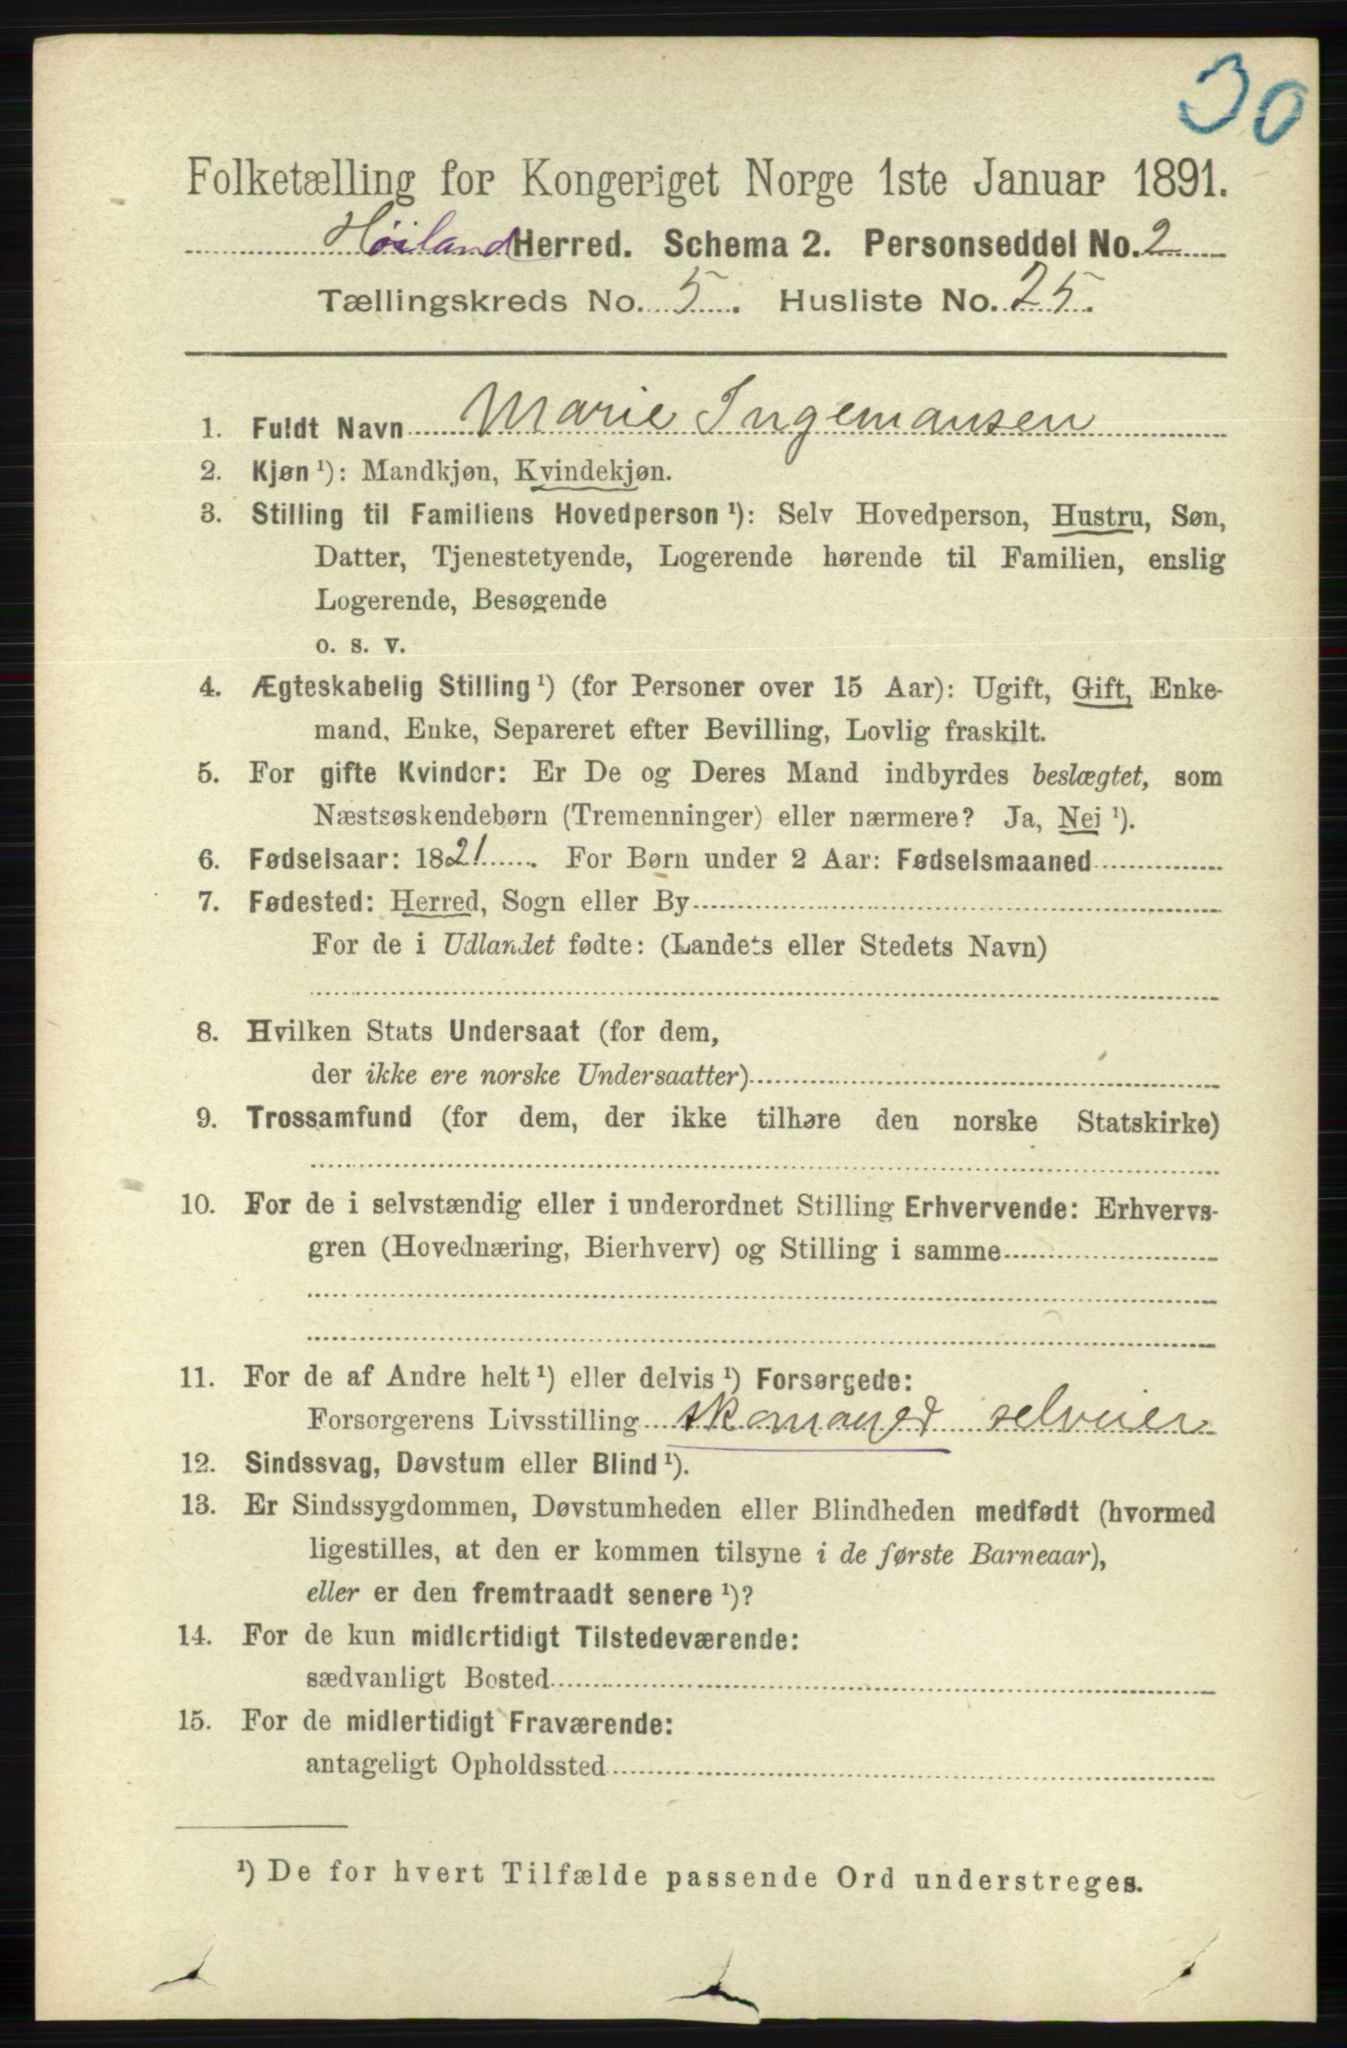 30
Folketælling for Kongeriget Norge 1ste Januar 1891.
Høiland Herred. Schema 2. Personseddel No. 2
Tællingskreds No. 5. Husliste No. 25.
1. Fuldt Navn Marie Ingemansen
2. Kjøn ¹): Mandkjøn, Kvindekjøn.
3. Stilling til Familiens Hovedperson ¹): Selv Hovedperson, Hustru, Søn,
Datter, Tjenestetyende, Logerende hørende til Familien, enslig
Logerende, Besøgende
o. s. v.
4. Ægteskabelig Stilling ¹) (for Personer over 15 Aar): Ugift, Gift, Enke-
mand, Enke, Separeret efter Bevilling, Lovlig fraskilt.
5. For gifte Kvinder: Er De og Deres Mand indbyrdes beslægtet, som
Næstsøskendebørn (Tremenninger) eller nærmere? Ja, Nei ¹).
6. Fødselsaar: 1821. For Børn under 2 Aar: Fødselsmaaned
7. Fødested: Herred, Sogn eller By
For de i Udlandet fødte: (Landets eller Stedets Navn)
8. Hvilken Stats Undersaat (for dem,
der ikke ere norske Undersaatter)
9. Trossamfund (for dem, der ikke tilhøre den norske Statskirke)
10. For de i selvstændig eller i underordnet Stilling Erhvervende: Erhvervs-
gren (Hovednæring, Bierhverv) og Stilling i samme
11. For de af Andre helt ¹) eller delvis ¹) Forsørgede:
Forsørgerens Livsstilling selveier
12. Sindssvag, Døvstum eller Blind ¹).
13. Er Sindssygdommen, Døvstumheden eller Blindheden medfødt (hvormed
ligestilles, at den er kommen tilsyne i de første Barneaar),
eller er den fremtraadt senere ¹)?
14. For de kun midlertidigt Tilstedeværende:
sædvanligt Bosted
15. For de midlertidigt Fraværende:
antageligt Opholdssted
¹) De for hvert Tilfælde passende Ord understreges.